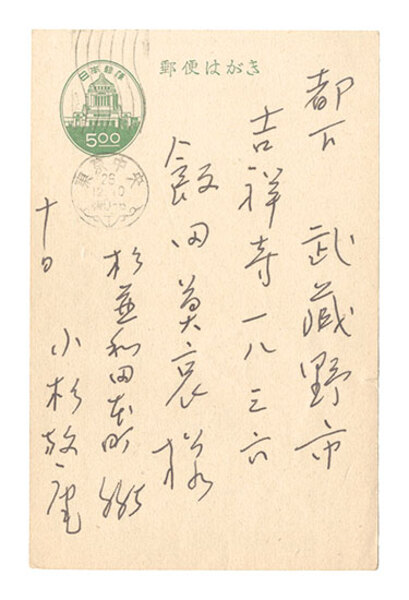 日本郵便
5.00
郵便はがき
東京中央
都下 武蔵野市
吉祥寺一八三六
飯田莫哀様
杉並和田本町
十日
小杉放庵